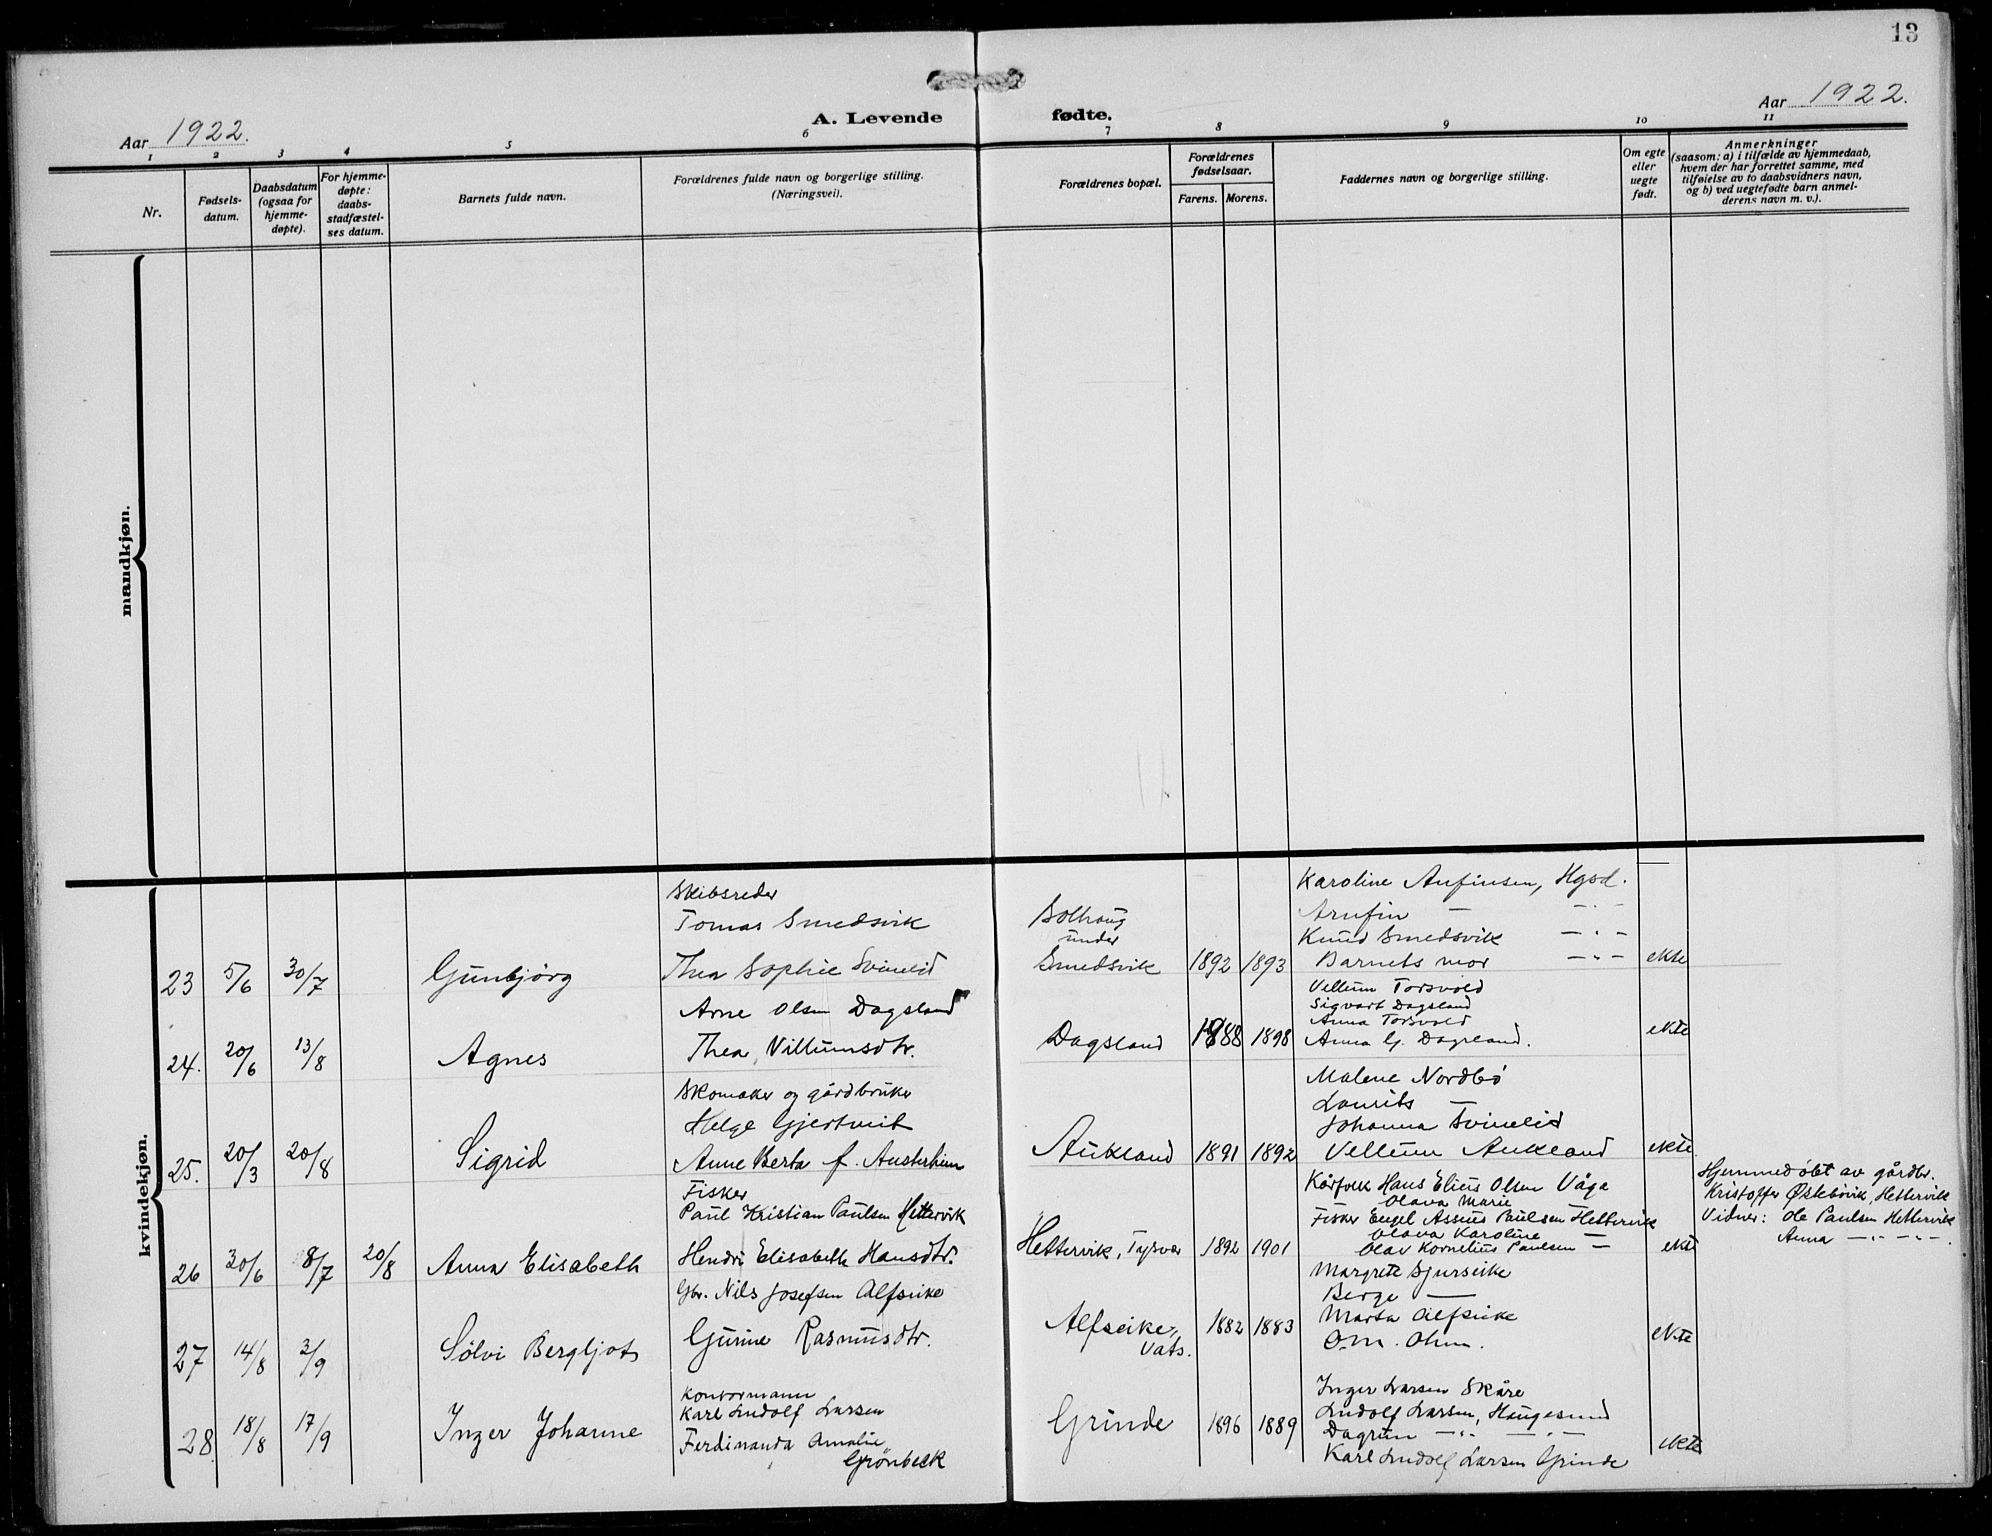 13
Aar 1922.
A. Levende fødte.
Aar 1922.
1 2 3 4 5 6 7 8 9 10 11
Nr.
Fødsels-
datum.
Daabsdatum
(ogsaa for
hjemme-
døpte).
For hjemme-
døpte:
daabs-
stadfæstel-
ses datum.
Barnets fulde navn.
Forældrenes fulde navn og borgerlige stilling.
(Næringsvei).
Forældrenes bopæl.
Forældrenes
fødselsaar.
Farens. Morens.
Faddernes navn og borgerlige stilling.
Om egte
eller
uegte
født.
Anmerkninger
(saasom: a) i tilfælde av hjemmedaab,
hvem der har forrettet samme, med
tilføielse av to daabsvidners navn,
og b) ved uegtefødte barn anmel-
derens navn m. v.).
mandkjøn.
kvindekjøn.
23 5/6 30/7 Gunbjørg
Skibsreder
Tomas Smedsvik
Thea Sophie Svinelid
Bolhaug
under
Smedsvik 1892 1893
Karoline Anfinsen, Hgsd.
Arnfin — — " —
Knud Smedsvik — " —
Barnets mor — " —
ekte
24. 20/6 13/8 Agnes
Arne Olsen Dagsland
Thea Villumsdtr.
Dagsland 1888 1898
Vellum Torsvold
Sigvart Dagsland
Anna Torsvold
Anna G. Dagsland.
ekte
25. 20/3 20/8 Sigrid
Skomaker og gårdbruker
Helge Gjertveit
Anne Berta f. Austerheim
Aukland 1891 1892
Malene Nordbø
Laurits
Johanna Svinelid
Vellum Aukland
ekte
26 30/6 8/7 20/8 Anna Elisabeth
Fisker
Paul Kristian Paulsen Hettervik
Hendri Elisabeth Hansdtr.
Hettervik, Tysvær 1892 1901
Kårfolk Hans Elius Olsen Våga
Olava Marie
Fisker Engel Assius Paulsen Hettervik
Olava Karoline —
Olav Kornelius Paulsen —
ekte
Hjemmedøbt av gårdbr.
Kristoffer Østebøvik, Hettervik
Vidner: Ole Paulsen Hettervik
Anna — " — " —
27 14/8 3/9 Sølvi Bergljot
Gbr. Nils Josefsen Alfseike
Gurine Rasmusdtr.
Alfseike,
Vats. 1882 1883
Margrete Djurseike
Berge —
Marta Alfseike
O. M. Ohm.
ekte
28 18/8 17/9 Inger Johanne
Kontormann
Karl Ludolf Larsen
Ferdinanda Amalie
Grønbeck
Grinde 1896 1889
Inger Larsen Skåre
Ludolf Larsen, Haugesund
Dagrun — " — — " —
Karl Ludolf Larsen Grinde
ekte